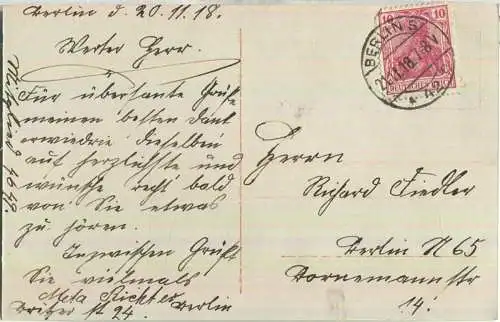 Berlin d. 20.11.18.
Werter Herr.
Für übersante Grüße
meinen besten Dank
erwiedrie dieselben
auf herzlichste und
wünsche recht bald
von Sie etwas
zu hören.
Inzwischen Grüßt
Sie vielmals
Meta Richter
Britzer st 24. Berlin
10 10
BERLIN S
18. 8
42
Herrn
Richard Fiedler
Berlin N 65
Dornemannstr
14.